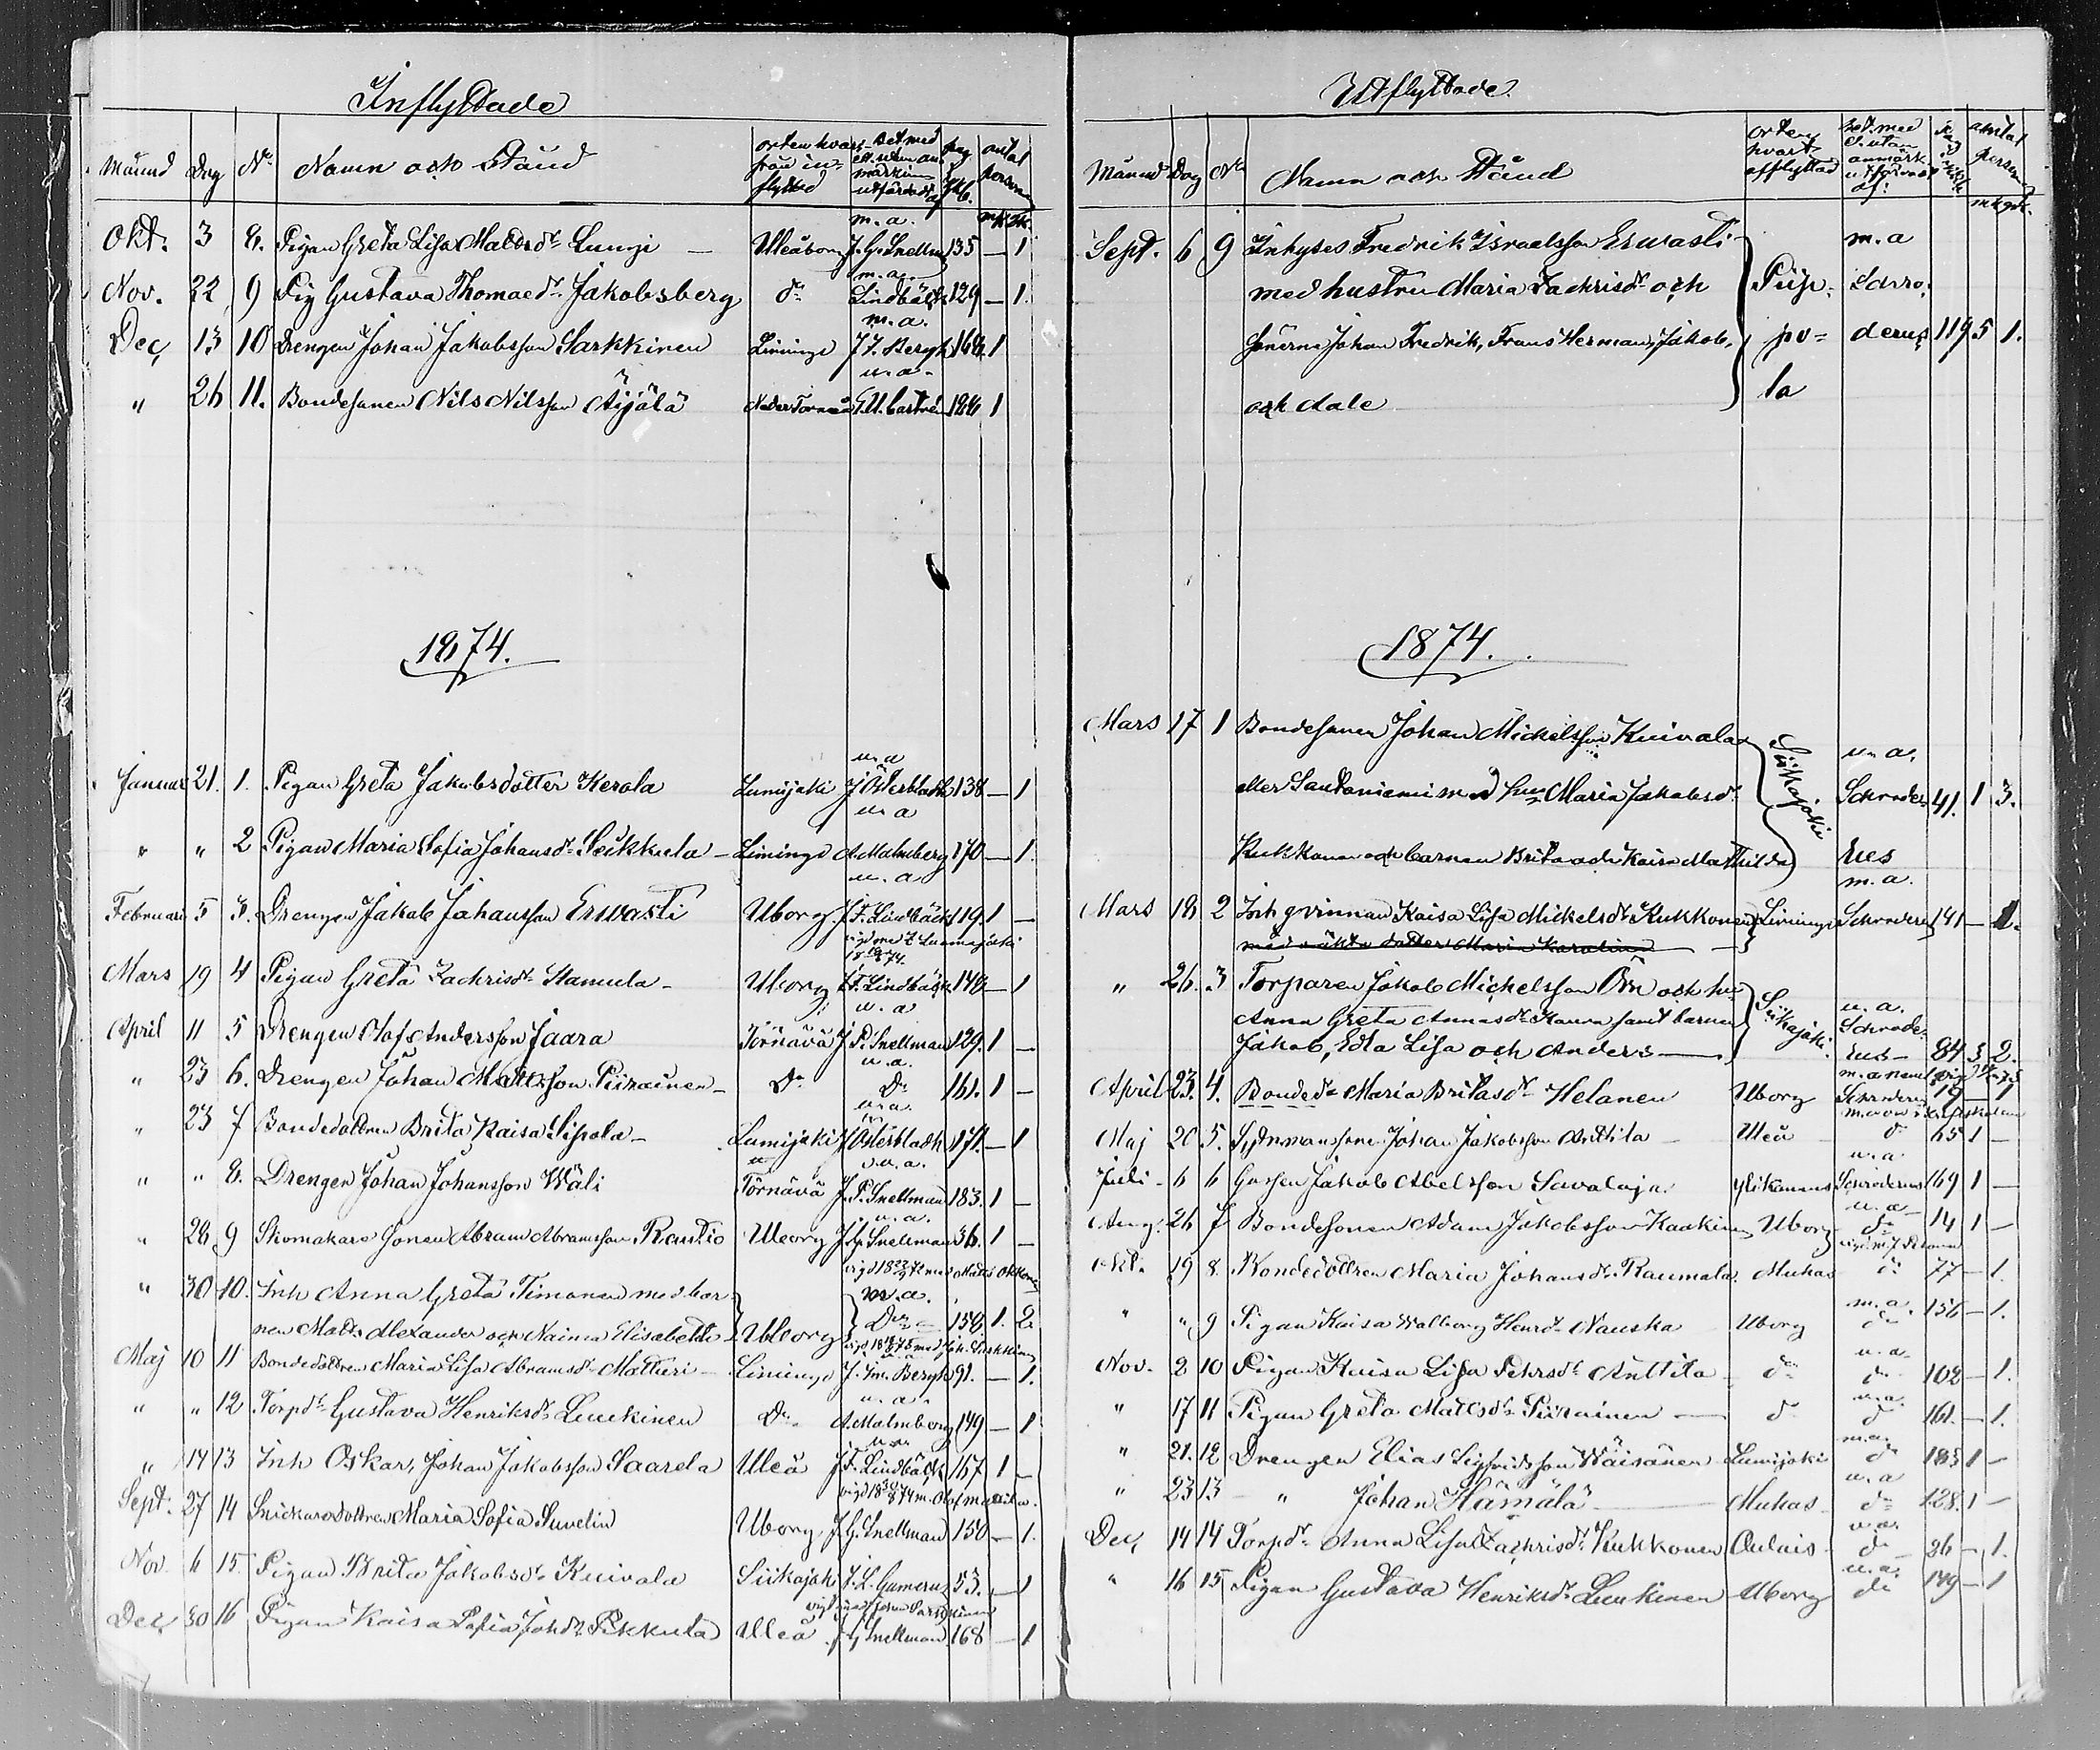 Inflyttade
Månad Dag No Namn och Stånd orten hvarifrån inflyttad Bet. med ell. utan anmärkning utfärdadt af pag. Kb. antal personer
mk qk.
Okt. 3 8. Pigan Greta Lisa Mattsdr Lumji — Uleåborg m.a. J. G. Snellman 135 — 1
Nov. 22 9 Pig Gustava Thomaedr Jakobsberg do m.a. Lindbäck 129 — 1.
Dec, 13 10 Drengen Johan Jakobsson Sarkkinen Limingo m.a. J. F. Bergh 168. 1
" 26 11. Bondesonen Nils Nilsson Äijälä Neder Torneå u.a. Castrén 188 1
1874.
Januar 21. 1. Pigan Greta Jakobsdotter Kerola Lumijoki u.a J Österbladh 138 — 1
" " 2 Pigan Maria Sofia Johansdr Seikkula — Limingo u.a A Malmberg 170 — 1.
Februari 5 3. Drengen Jakob Johansson Erwasti Uborg u.a J F. Lindbäck 119. 1 —
Mars 19 4 Pigan Greta Zachrisdr Hamula — Uborg J F. Lindbäck 148 — 1
April 11 5 Drengen Olof Andersson Jaara Törnävä u.a J P. Snellman 129. 1 —
" 23 6. Drengen Johan Mattsson Piirainen — Do u.a. Do 161. 1 —
" 23 7 Bondedottren Brita Kaisa Sipola — Lumijoki u.a. J Österbladh 171. — 1
" " 8. Drengen Johan Johansson Wäli Törnävä u.a. J. P. Snellman 183. 1 —
" 28 9 Skomakare sonen Abram Abramsson Rautio Uleborg u.a. J. G. Snellman 36. 1 —
" 30 10. Inh Anna Greta Timonen med bar-
nen Matts Alexander och Naima Elisabeth Uleborg m.a. Do 158. 1. 2.
Maj 10 11 Bondedottren Maria Lisa Abramsdr Mattieri — Limingo J. Im. Bergh 91. — 1.
" " 12 Torpdr Gustava Henriksdr Luukinen Do u.a. A. Malmberg 149 — 1
" 14 13 Inh Oskar, Johan Jakobsson Saarela Uleå u.a. J F. Lindbäck 167 1 —
Sept. 27 14 Snickaredottren Maria Sofia Sunelin Uborg J G. Snellman 150 — 1.
Nov. 6 15. Pigan Brita Jakobsdr Kuivala Siikajoki J. L. Gumerus 53. — 1
Dec, 30 16 Pigan Kaisa Sofia Johdr Pikkula Uleå J G Snellman. 168 — 1
Utflyttade.
Månad Dag No Namn och Stånd orten hvart afflyttad bet. med el. utan anmärk. utfärdadt af: antal personer
mk qk.
Sept. 6 9 Inhyses Fredrik Israelsson Erwasti m.a
med hustru Maria Zachrisdr och Piip- Schro-
sönerna Johan Fredrik, Frans Herman, Jakob, po- derus 119 5 1.
och Aale la
1874.
Mars 17 1 Bondesonen Johan Mickelsson Kuivala u.a.
eller Santaniemi med hu Maria Jakobsdr Siikajoki Schrode- 41. 1 3.
Kukkonen och barnen Brita och Kaisa Mathilda rus
Mars 18 2 Inh qvinnan Kaisa Lisa Mickelsdr Kukkonen Limingo m.a. Schroderus 141 — 1.
med oäkta dotter Maria Karolina
" 26. 3 Torparen Jakob Mickelsson Örn och hu u.a.
Anna Greta Annasdr Kaura samt barnen Siikajoki. Schrode-
Jakob, Edla Lisa och Anders — rus — 84 3 2.
April 23. 4. Bondedr Maria Britasdr Helanen Uborg Schroderus 19 — 1
Maj 20 5. Sytnmansson Johan Jakobsson Anttila — Uleå do 65 1 —
Juli — 6 6 Gossen Jakob Abelsson Savaloja Ylikannus u.a. Schroderus 169 1 —
Aug. 26 7 Bondesonen Adam Jakobsson Kaakinen Uborg u.a — do 14 1 —
Okt. 19 8. Bondedottren Maria Johansdr Raumala. Muhos do 77 — 1.
" " 9 Pigan Kaisa Walborg Henrdr Nauska Uborg m.a. do 156 — 1.
Nov. 2 10 Pigan Kaisa Lisa Pehrsdr Anttila — do u.a. do 102 — 1.
" 17 11 Pigan Greta Mattsdr Piirainen — do u.a. do 161. — 1.
" 21. 12 Drengen Elias Sigfridsson Wäisänen Lumijoki m.a. do 183 1 —
" 23 13 — " Johan Hämälä — Muhos u.a do 128. 1 —
Dec, 14 14 Torpdr Anna Lisa Zachrisdr Kukkonen Oulais u.a. do 26 — 1.
" 16 15 Pigan Gustava Henriksdr Luukinen Uborg u.a. do 149 — 1